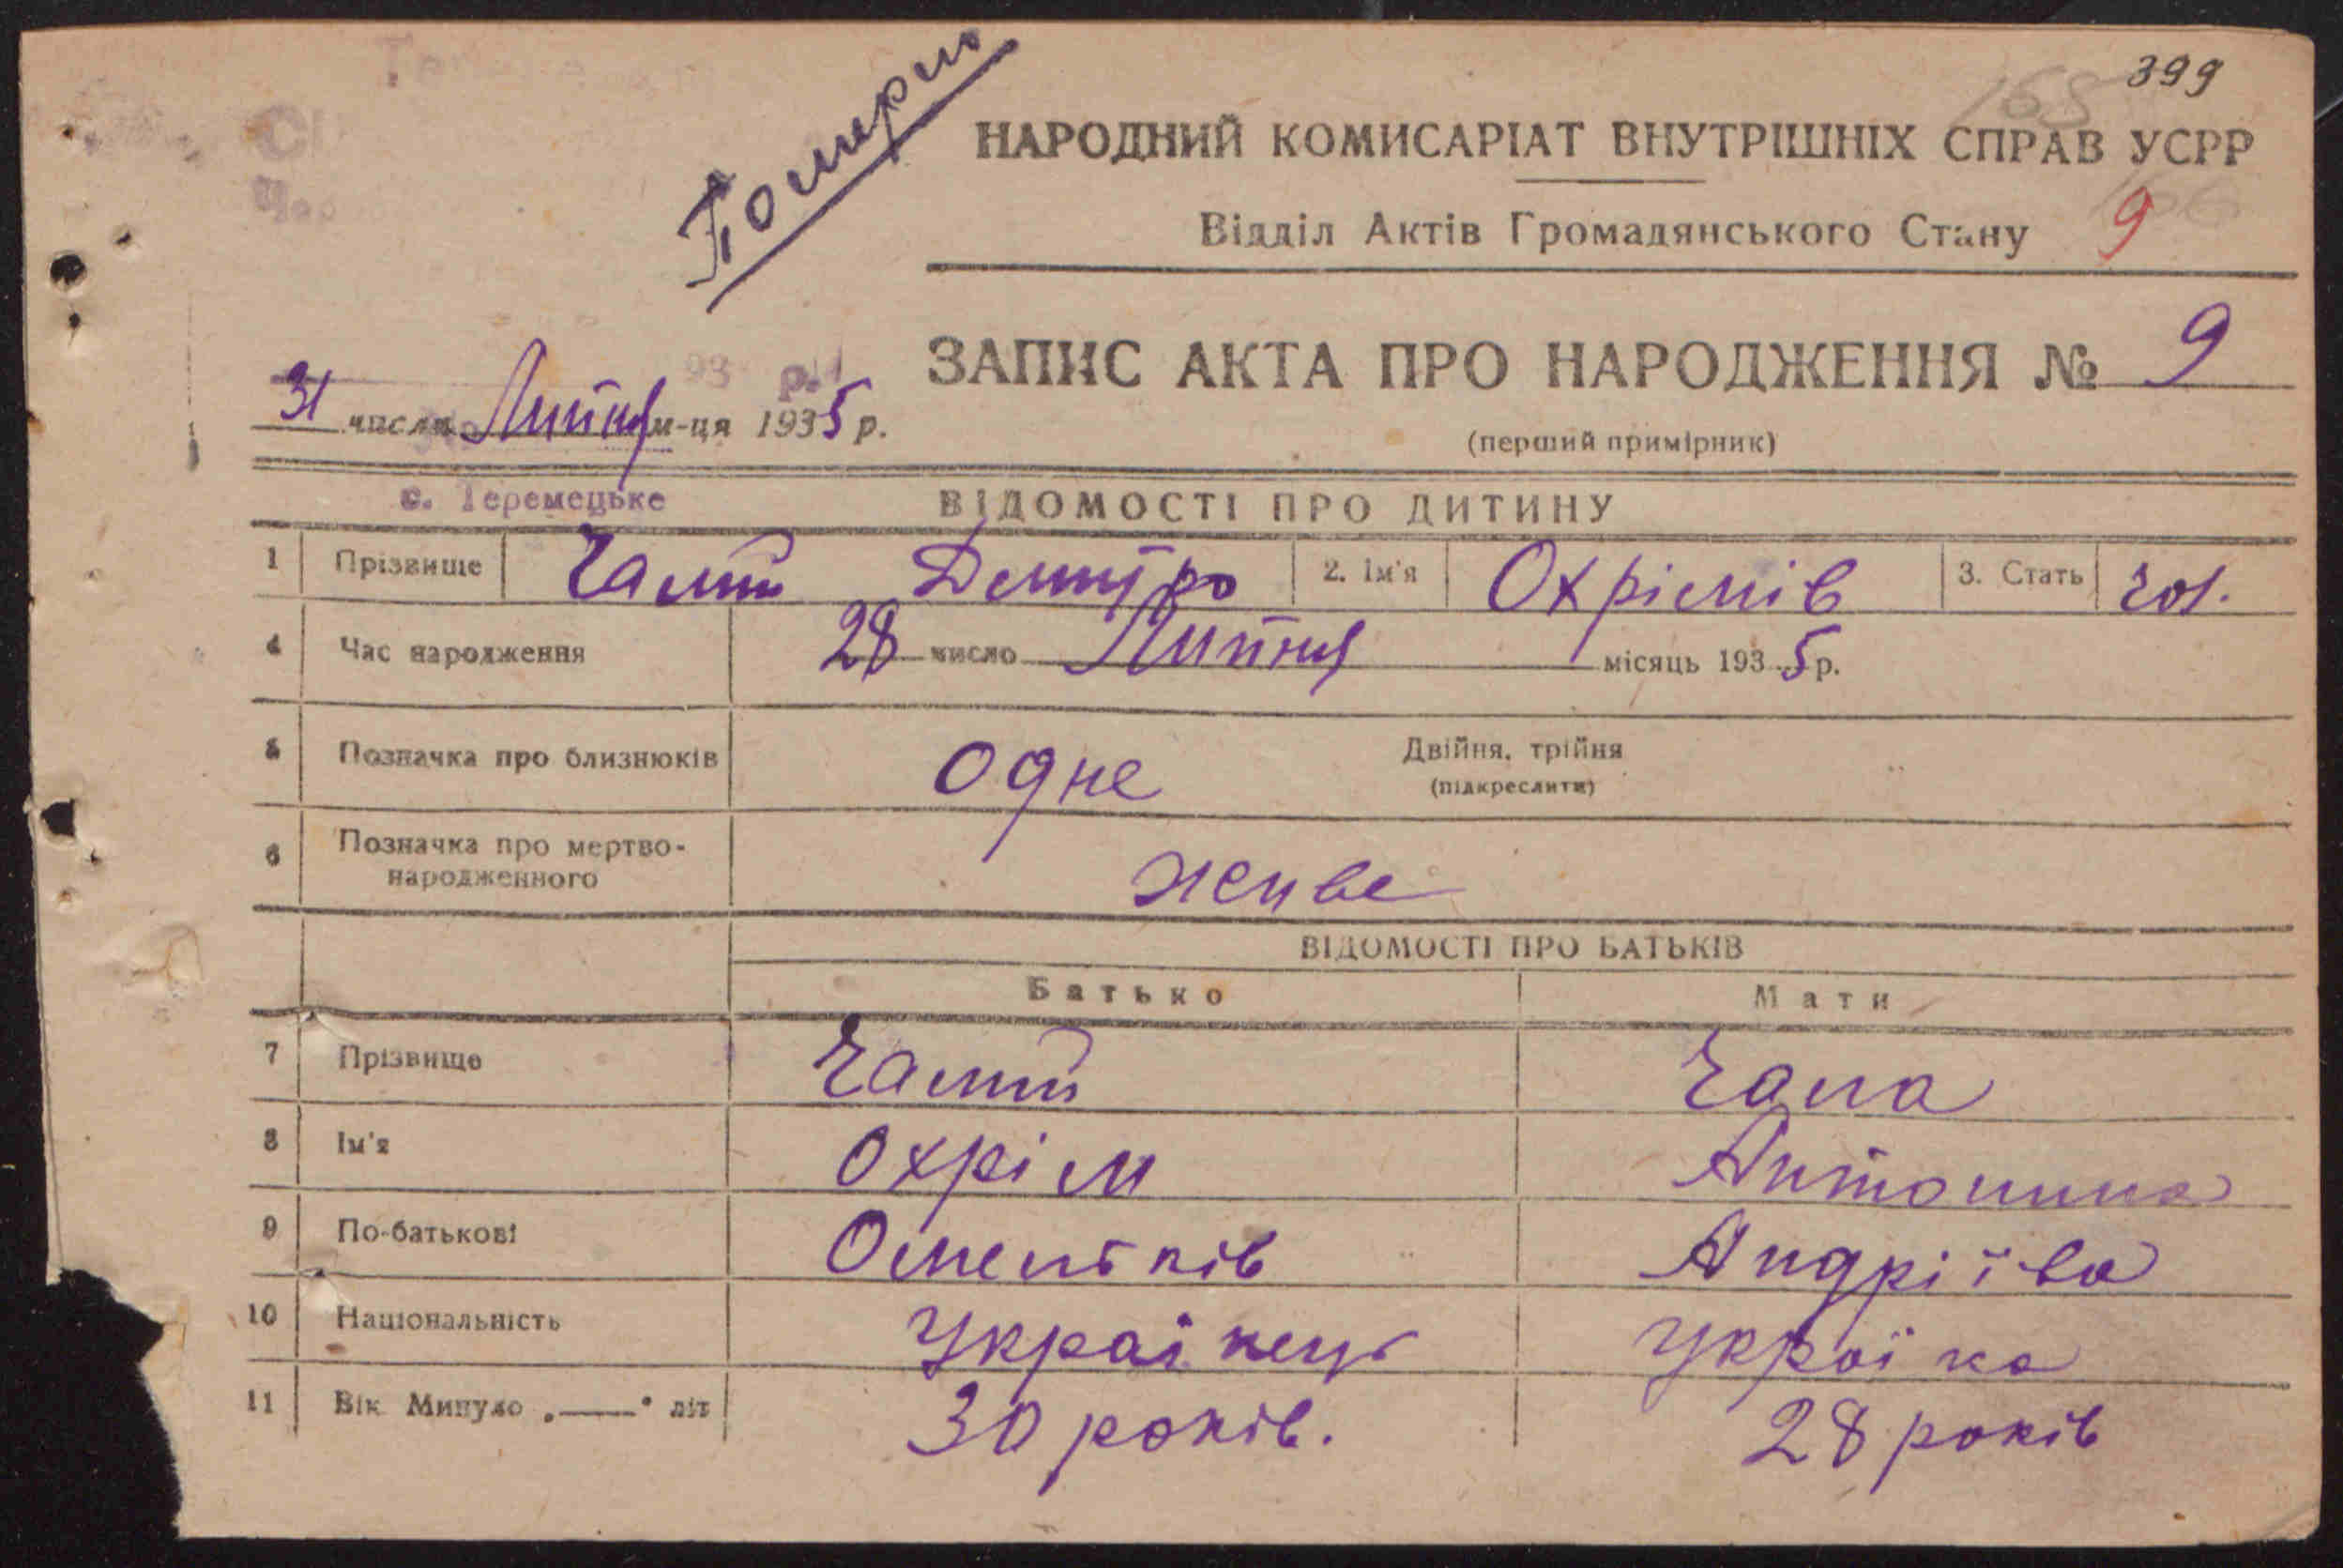 399
Помер
НАРОДНИЙ КОМИСАРІАТ ВНУТРІШНІХ СПРАВ УСРР
Відділ Актів Громадянського Стану 9
ЗАПИС АКТА ПРО НАРОДЖЕННЯ № 9
31 числа Липня м-ця 1935 р.
(перший примірник)
с. Теремецьке
ВІДОМОСТІ ПРО ДИТИНУ
1 Прізвище Дмитро 2. Ім'я Охрімів 3. Стать чол.
4 Час народження 28 число Липня місяць 1935 р.
5 Позначка про близнюків одне Двійня, трійня
(підкреслити)
6 Позначка про мертво-
народженного живе
ВІДОМОСТІ ПРО БАТЬКІВ
Батько Мати
7 Прізвище
8 Ім'я Охрім Антонина
9 По-батькові Омельків Андріїва
10 Національність Українець Україка
11 Вік Минуло „——" літ 30 років. 28 років